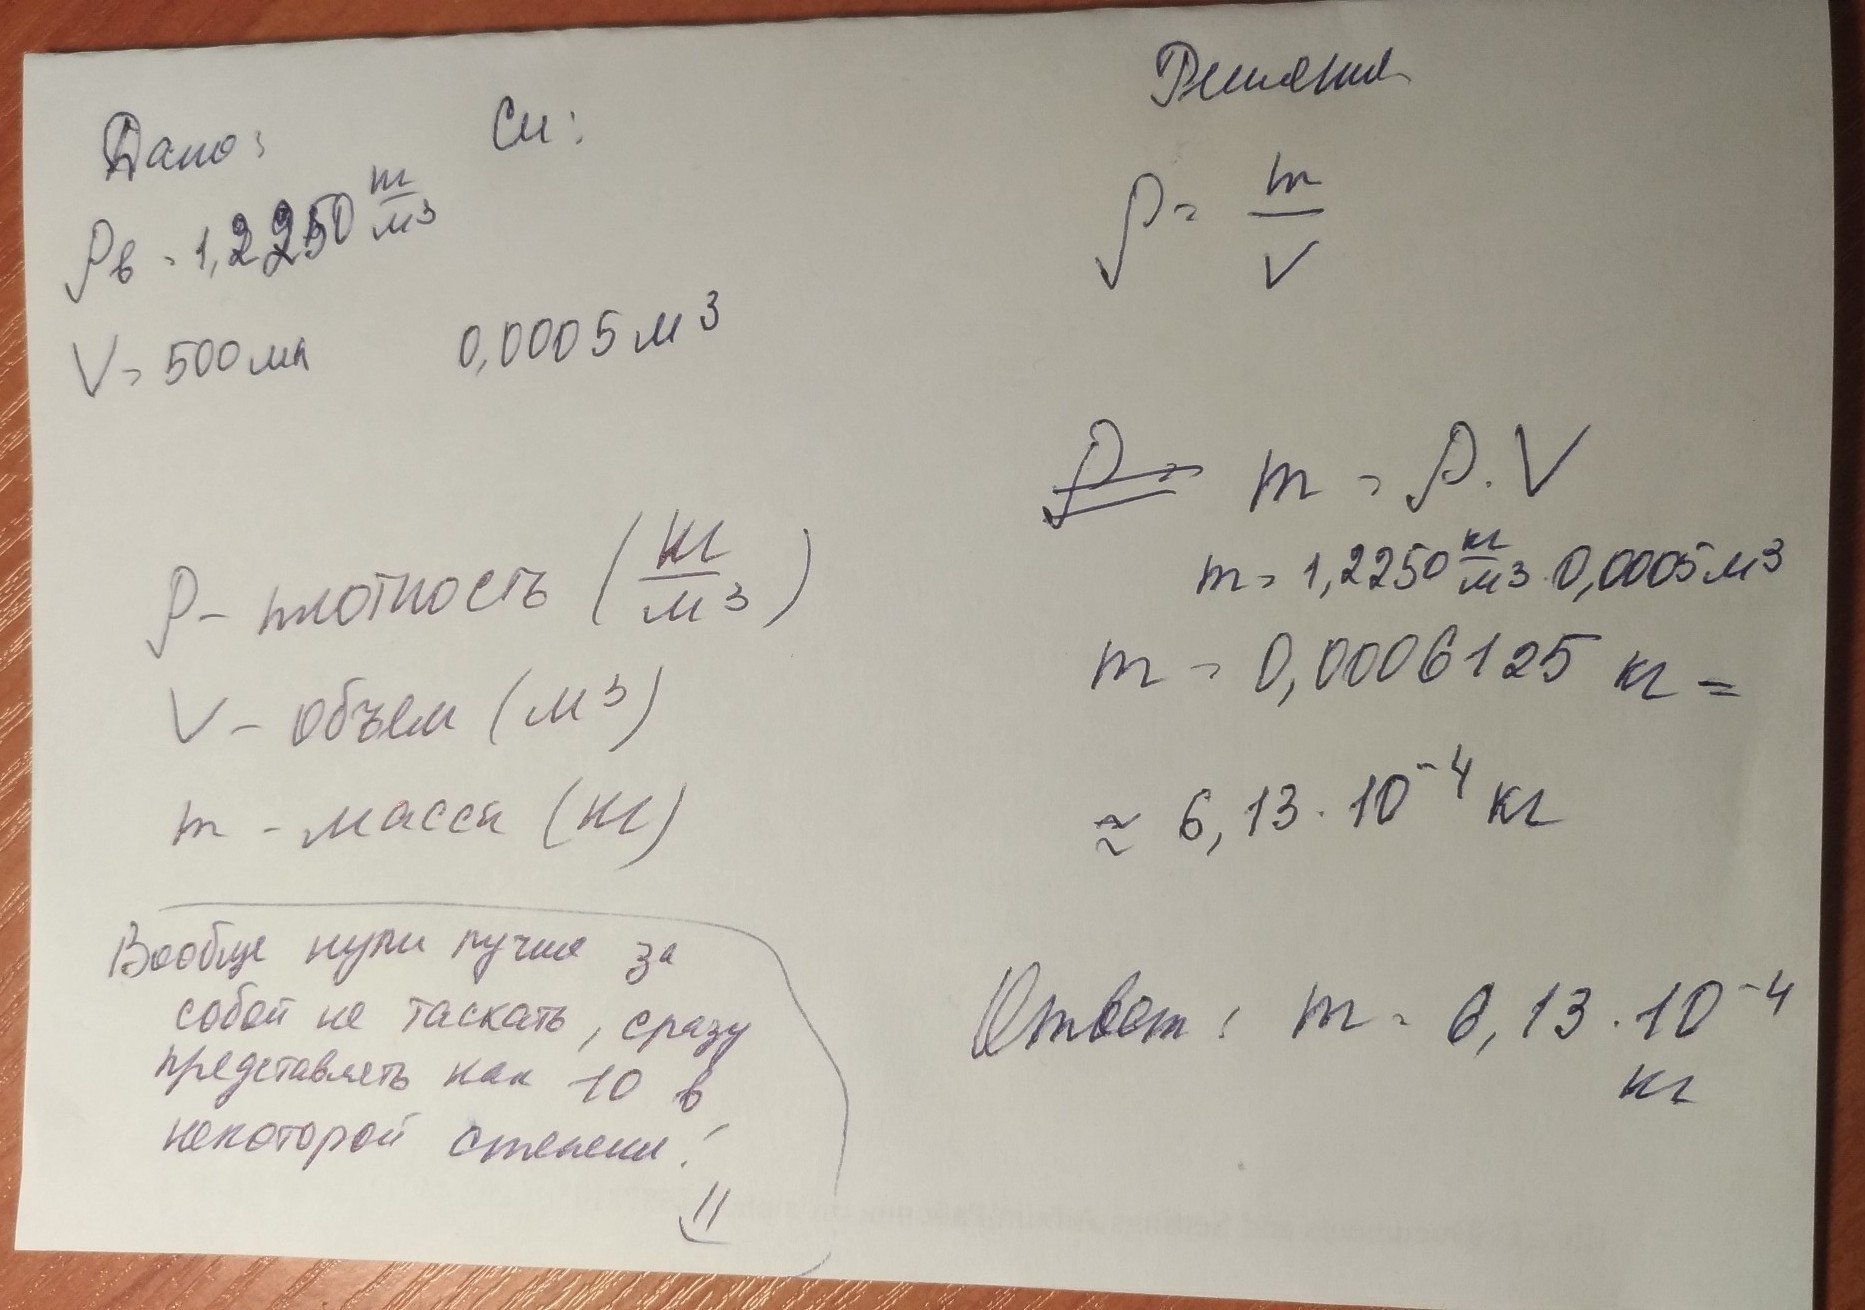 Дано:
Си:
ρв = 1,2250 кг/м³
V = 500 мл
0,0005 м³
ρ - плотность (кг/м³)
V - объем (м³)
m - масса (кг)
Вообще нули лучше за
собой не таскать, сразу
представлять как 10 в
некоторой степени!
Решение
ρ = m/V
m = ρ · V
m = 1,2250 кг/м³ · 0,0005 м³
m = 0,0006125 кг =
≈ 6,13 · 10⁻⁴ кг
Ответ: m = 6,13 · 10⁻⁴
кг